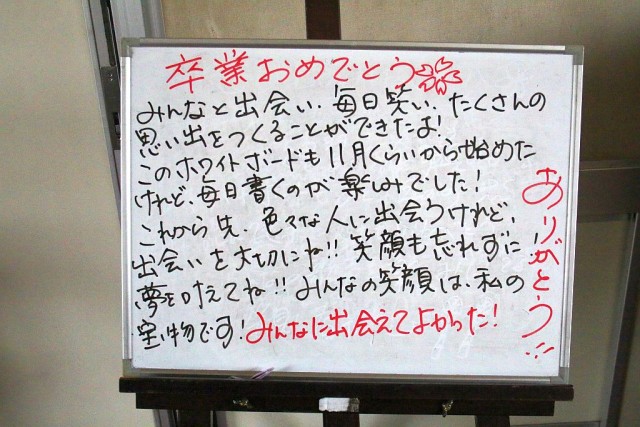 卒業おめでとう
みんなと出会い、毎日笑い、たくさんの
思い出をつくることができたよ!
このホワイトボードも11月くらいから始めた
けれど、毎日書くのが楽しみでした!
これから先、色々な人に出会うけれど、
出会いを大切にね!!笑顔も忘れずに!
夢を叶えてね!!みんなの笑顔は、私の
宝物です!みんなに出会えてよかった!
ありがとう!!